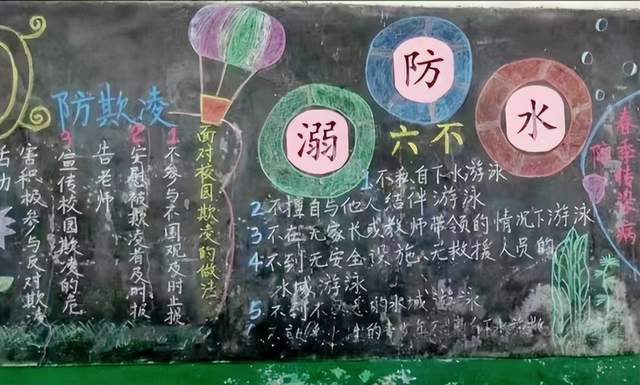 防欺凌
面对校园欺凌的做法
1不参与不围观及时上报
2安慰被欺凌者及时报
告老师
3宣传校园欺凌的危
害积极参与反对欺凌
活动
防
溺
水
六不
1不私自下水游泳
2不擅自与他人结伴游泳
3不在无家长或教师带领的情况下游泳
4不到无安全设施、无救援人员的
水域游泳
5不到不的水域游泳
春季传染病
防